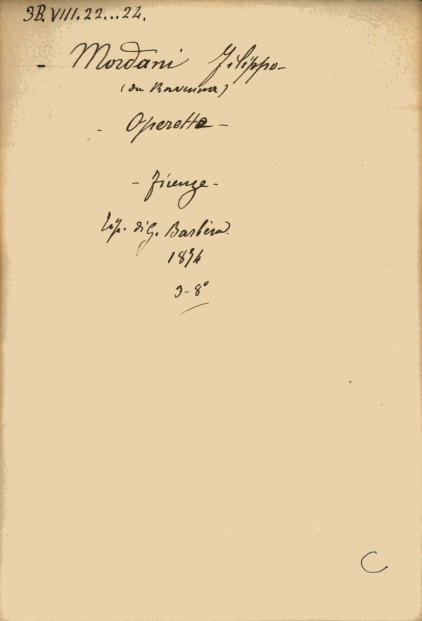 3B.VIII.22...24.
- Mordani Filippo -
(da Ravenna)
- Operette -
- Firenze -
Tip. di G. Barbèra.
1874
3-8°
C